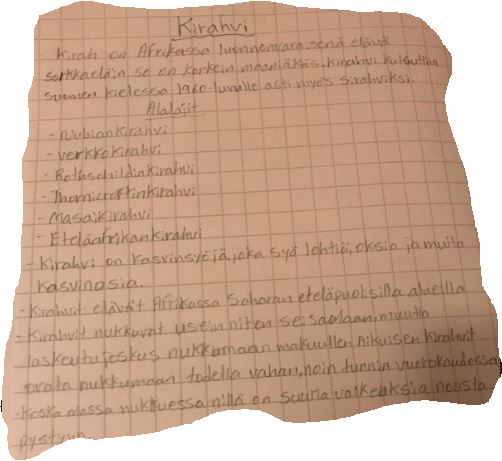 Kirahvi
Kirah on Afrikassa luonnonvaraisenä elävä
sorkkaeläin se on korkein maanisäkäs. Kirahvi kutsuttiin
suomen kielessä 1960-luvulle asti myös sirahviksi.
Alalajit
- Nubiankirahvi
- verkkokirahvi
- Rothschildinkirahvi
- Thornicroftinkirahvi
- Masaikirahvi
- Eteläafrikankirahvi
- Kirahvi on kasvinsyöjä, joka syö lehtiä, oksia ja muita
kasvinosia.
- Kirahvit elävät Afrikassa Saharan eteläpuolisilla alueilla
- Kirahvit nukkuvat usein niten seisaalaan, mutta
laskeutu joskus nukkumaan makuullen Aikuisen kirahvit
nukkumaan todella vähän, noin tunnin vuorokaudessa
- koska massa nukkuessa niillä on suuria vaikeuksia nousta
pystyyn